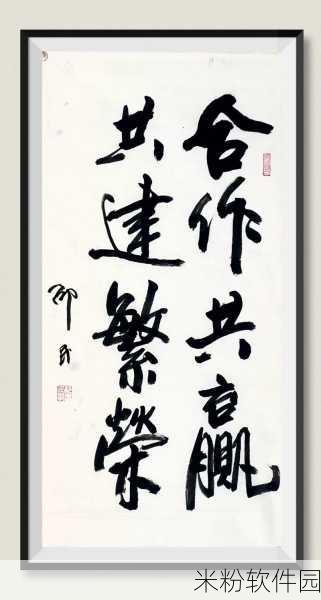 合作共赢
共建繁荣
邵民
米粉软件园